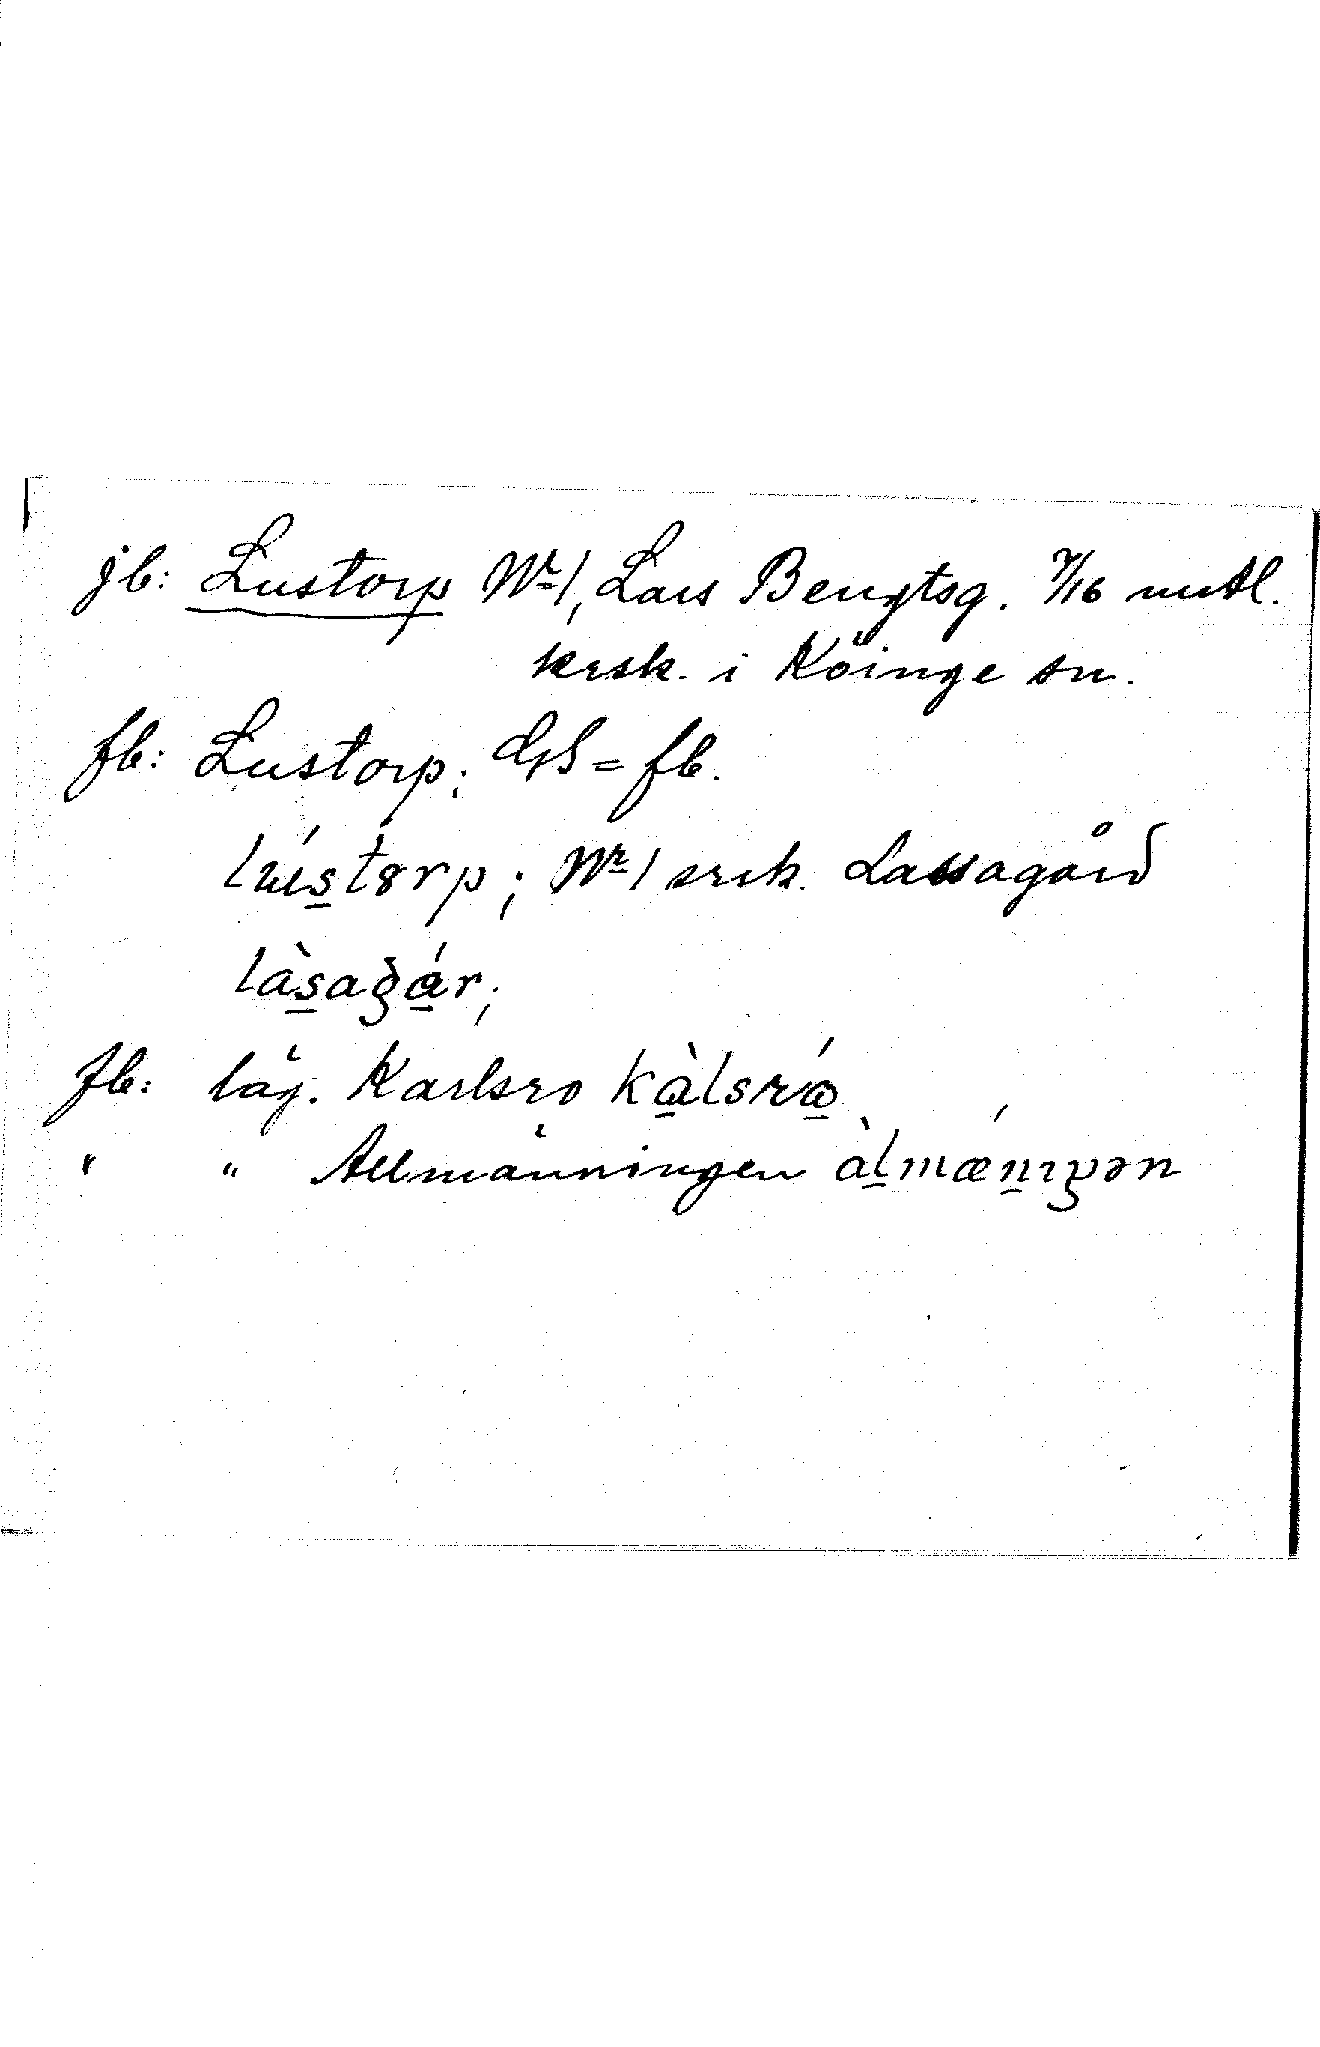 jb: Lustorp Nr 1, Lars Bengtsg. 7/16 mtl.
krsk. i Köinge sn.
fb: Lustorp; GS = fb.
lústørp; Nr 1 srsk. Lassagård
làsagár;
fb: läg. Karlsro kàlsró
" " Allmänningen àlmænıŋən